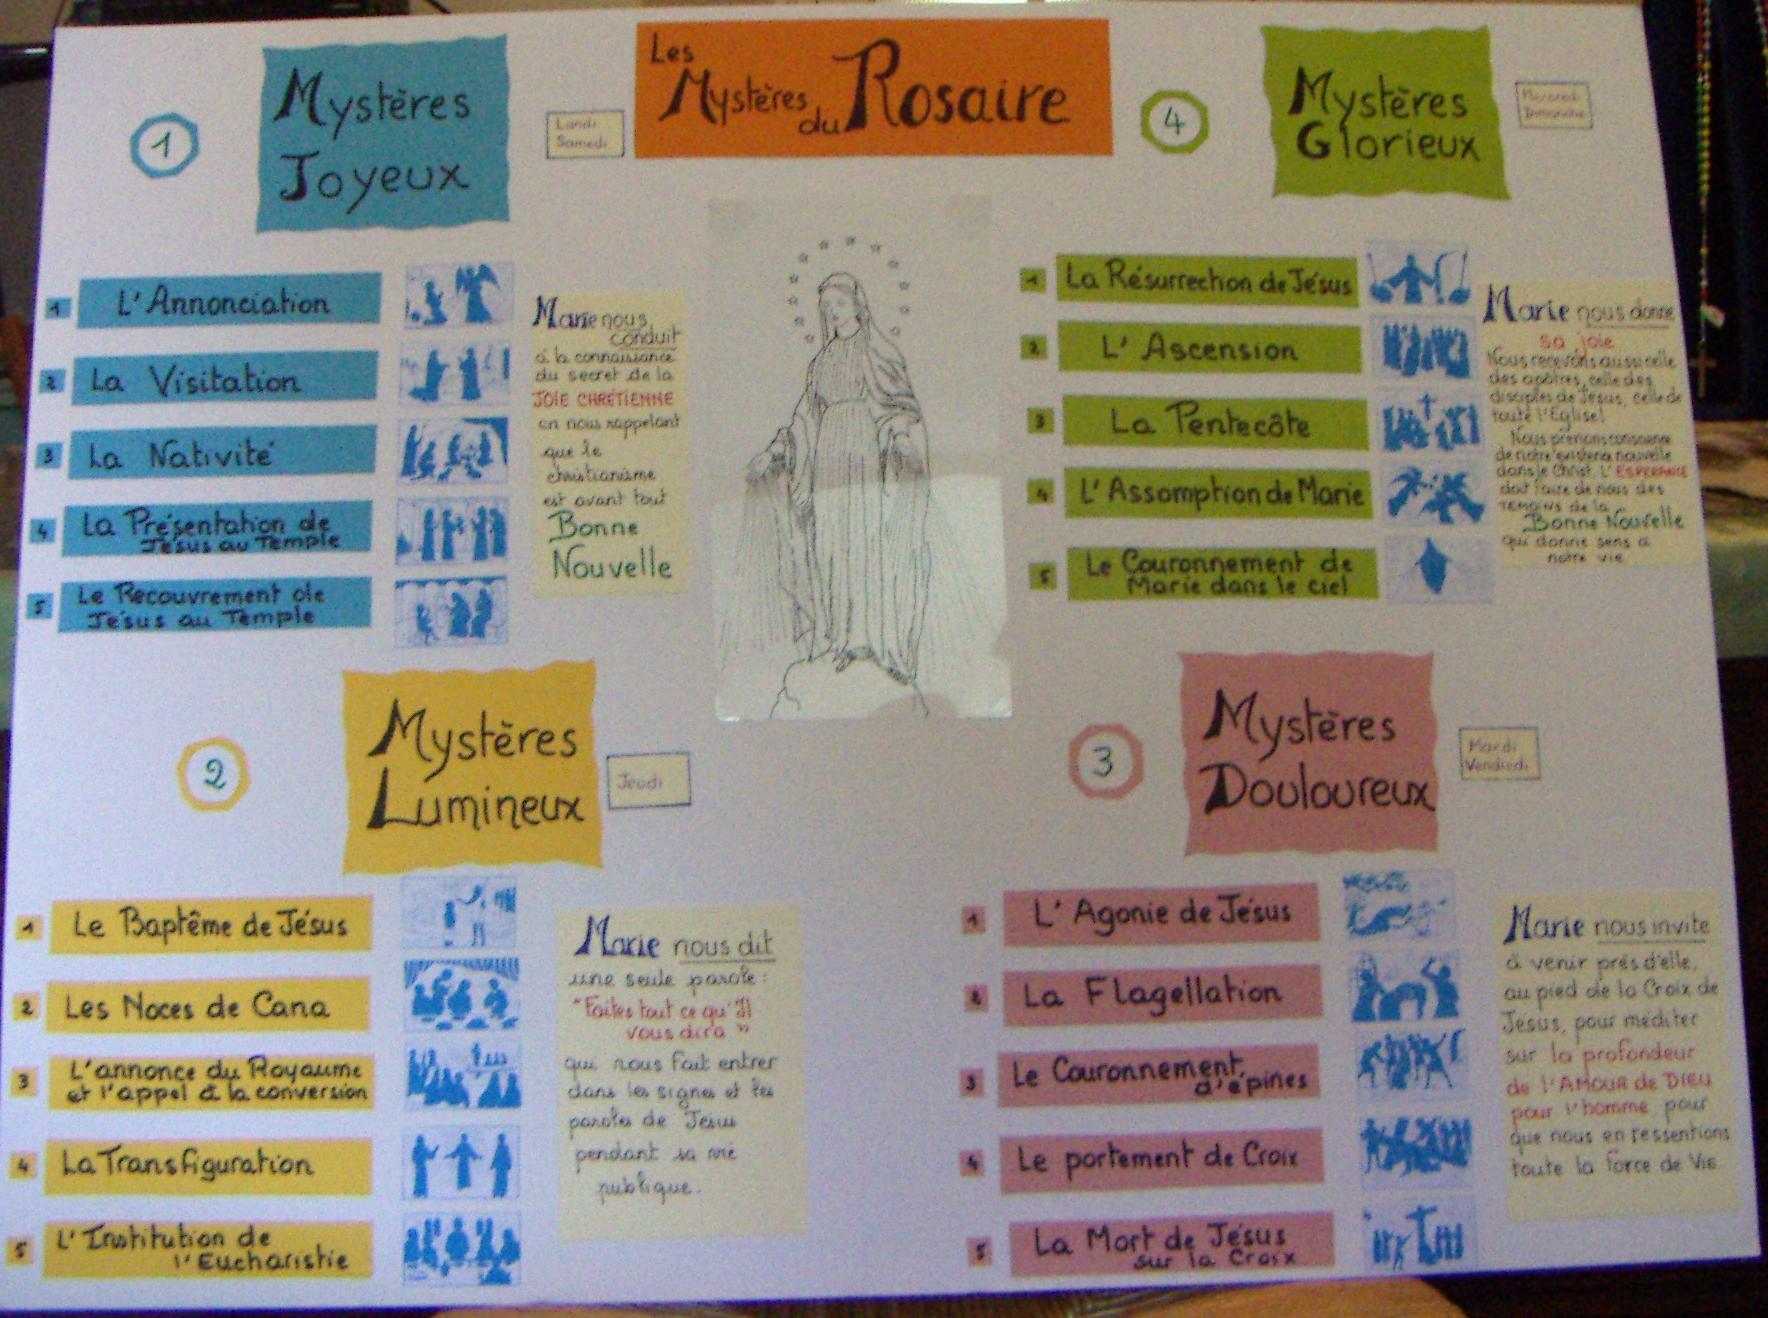 Les
Mystères
du Rosaire
1
Mystères
Joyeux
Lundi
Samedi
1
L'Annonciation
2
La Visitation
3
La Nativité
4
La Présentation de
Jésus au Temple
5
Le Recouvrement de
Jésus au Temple
Marie nous
conduit
à la connaissance
du secret de la
JOIE CHRÉTIENNE
en nous rappelant
que le
christianisme
est avant tout
Bonne
Nouvelle
4
Mystères
Glorieux
Mercredi
Dimanche
1
La Résurrection de Jésus
2
L'Ascension
3
La Pentecôte
4
L'Assomption de Marie
5
Le Couronnement de
Marie dans le ciel
Marie nous donne
sa joie
Nous recevons aussi celle
des apôtres, celle des
disciples de Jésus, celle de
toute l'Église!
Nous prenons conscience
de notre existence nouvelle
dans le Christ. L'ESPERANCE
doit faire de nous des
TEMOINS de la
Bonne Nouvelle
qui donne sens à
notre vie
2
Mystères
Lumineux
Jeudi
1
Le Baptême de Jésus
2
Les Noces de Cana
3
L'annonce du Royaume
et l'appel à la conversion
4
La Transfiguration
5
L'Institution de
l'Eucharistie
Marie nous dit
une seule parole :
"Faites tout ce qu'Il
vous dira"
qui nous fait entrer
dans les signes et les
paroles de Jésus
pendant sa vie
publique.
3
Mystères
Douloureux
Mardi
Vendredi
1
L'Agonie de Jésus
2
La Flagellation
3
Le Couronnement
d'épines
4
Le portement de Croix
5
La Mort de Jésus
sur la Croix
Marie nous invite
à venir près d'elle,
au pied de la Croix de
Jésus, pour méditer
sur la profondeur
de l'AMOUR de DIEU
pour l'homme, pour
que nous en ressentions
toute la force de Vie.